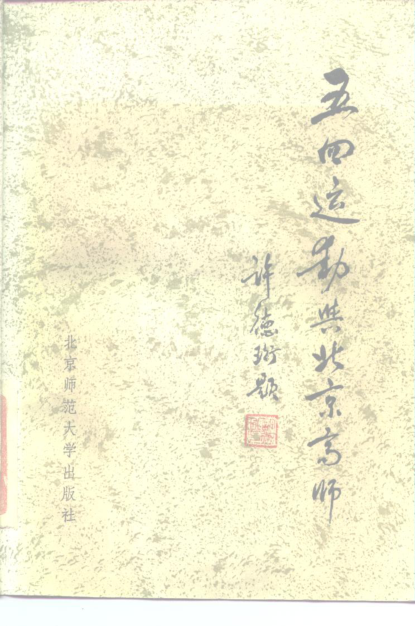 五四运动与北京高师
许德珩题
北京师范大学出版社